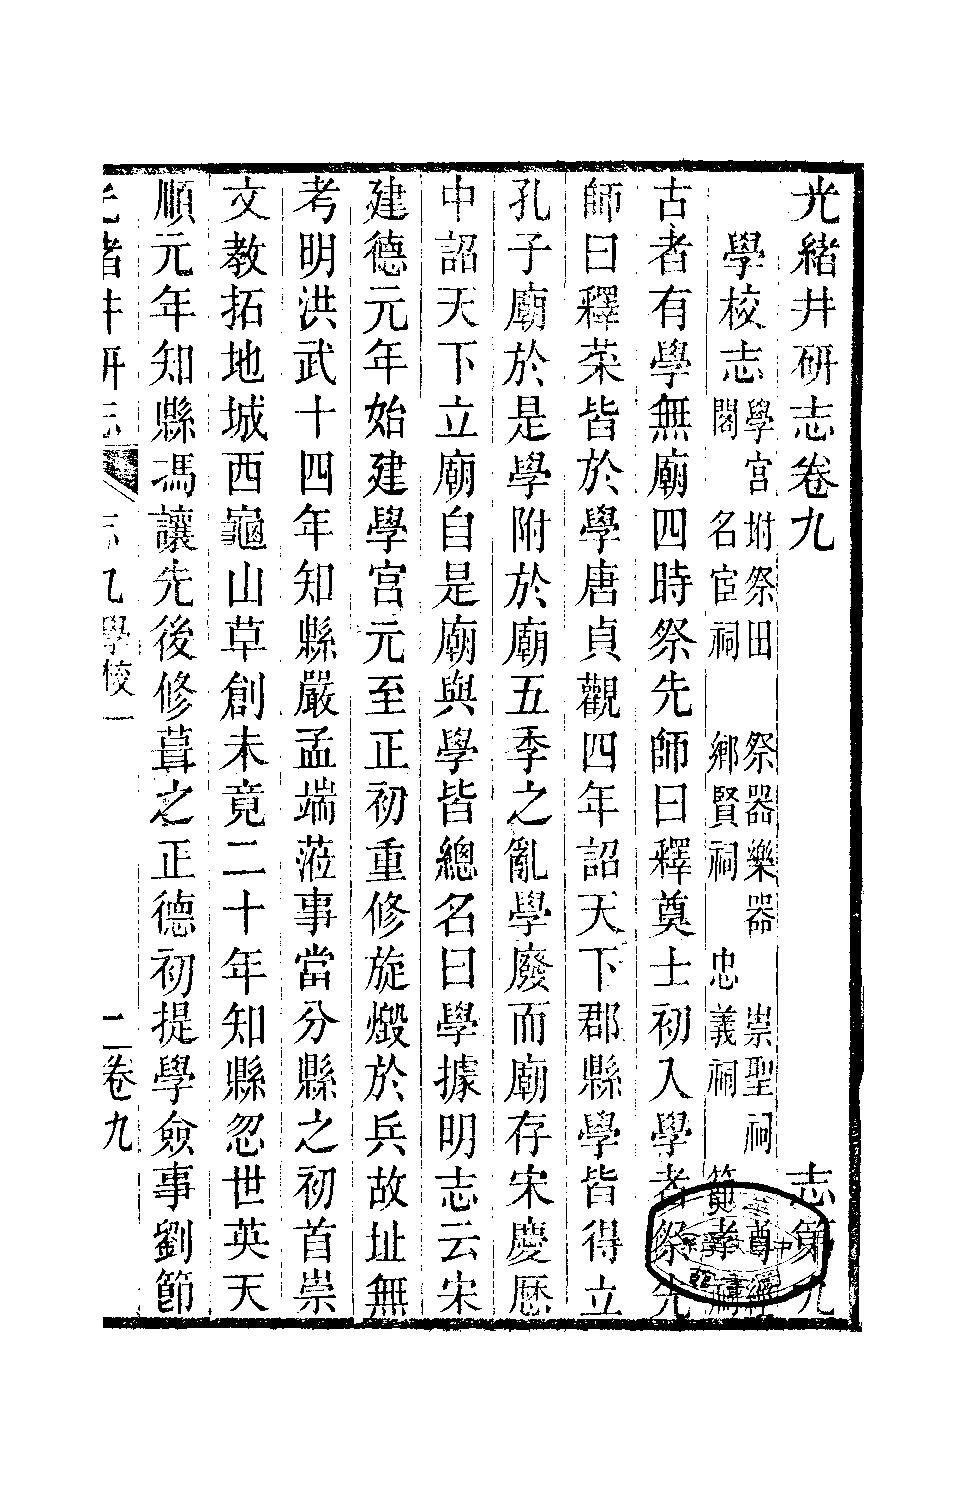 光緒井研志卷九　志第九
學校志　學宮坿祭田　祭器樂器　崇聖祠　尊經
閣　名宦祠　鄉賢祠　忠義祠　節孝祠
古者有學無廟四時祭先師曰釋奠士初入學者祭先
師曰釋菜皆於學唐貞觀四年詔天下郡縣學皆得立
孔子廟於是學附於廟五季之亂學廢而廟存宋慶歷
中詔天下立廟自是廟與學皆總名曰學據明志云宋
建德元年始建學宮元至正初重修旋燬於兵故址無
考明洪武十四年知縣嚴孟端蒞事當分縣之初首崇
文教拓地城西龜山草創未竟二十年知縣忽世英天
順元年知縣馮讓先後修葺之正德初提學僉事劉節
光緒井研志　志九學校一　二卷九